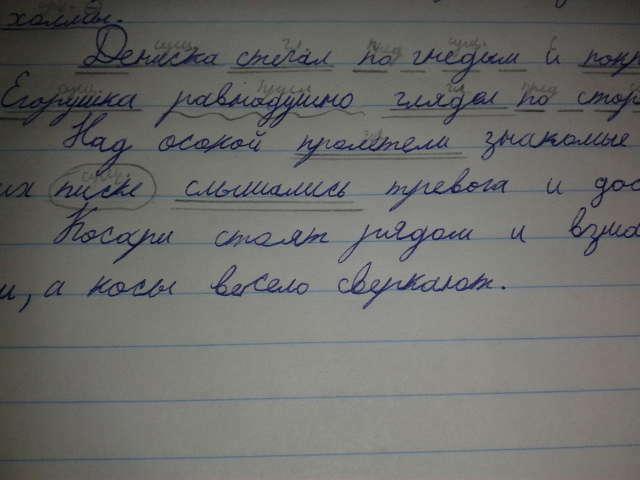 холмы.
Дениска стегал по гнедым и покр
Егорушка равнодушно глядел по стор
Над осокой пролетели знакомые
их писке слышались тревога и дос
Косари стоят рядом и взма
и, а косы весело сверкают.